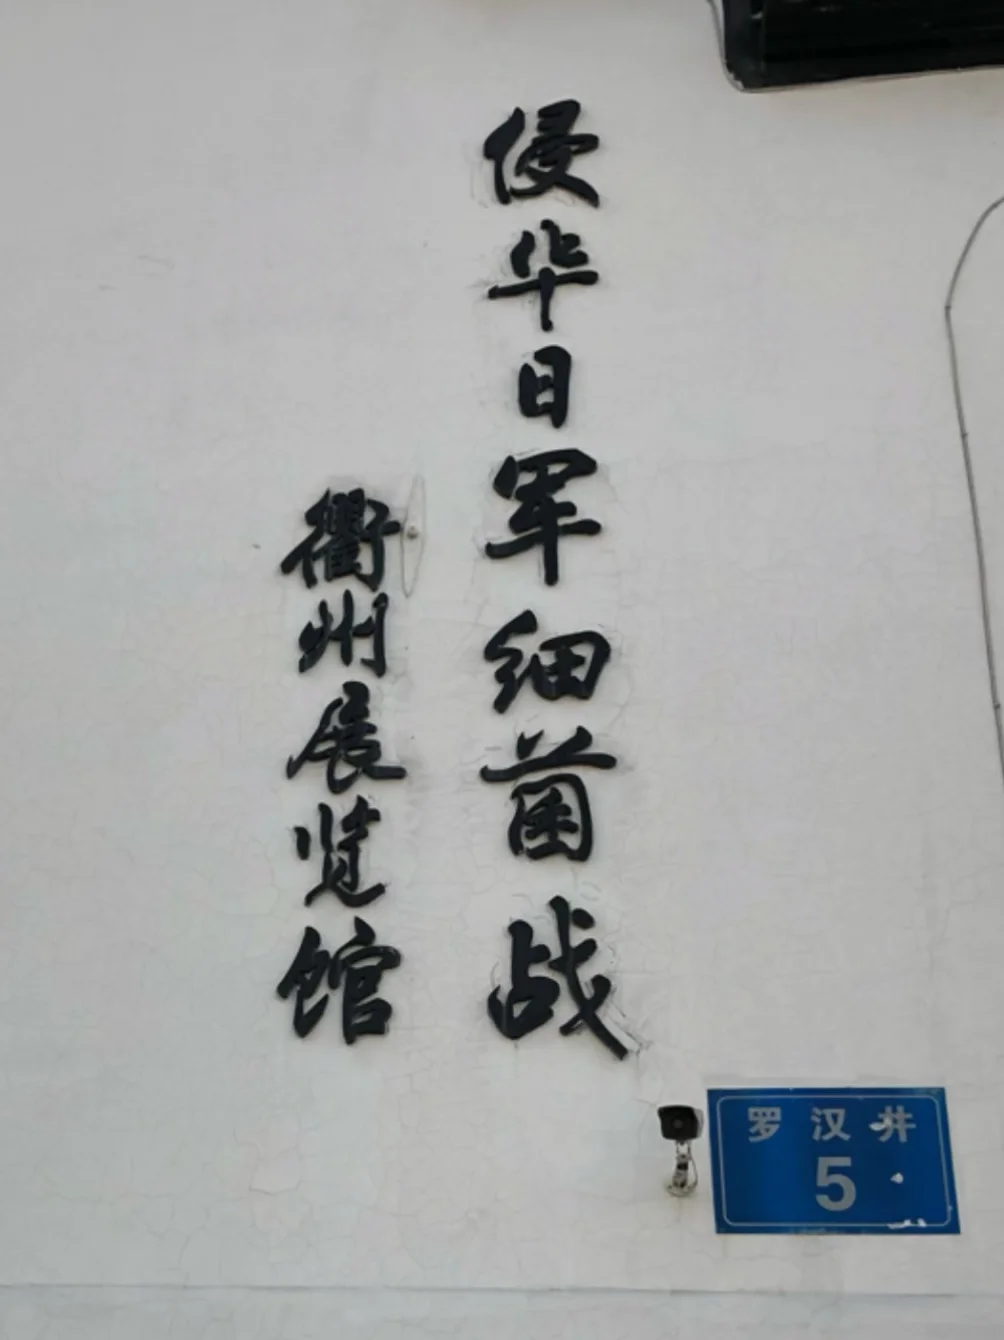 侵华日军细菌战
衢州展览馆
罗汉井
5